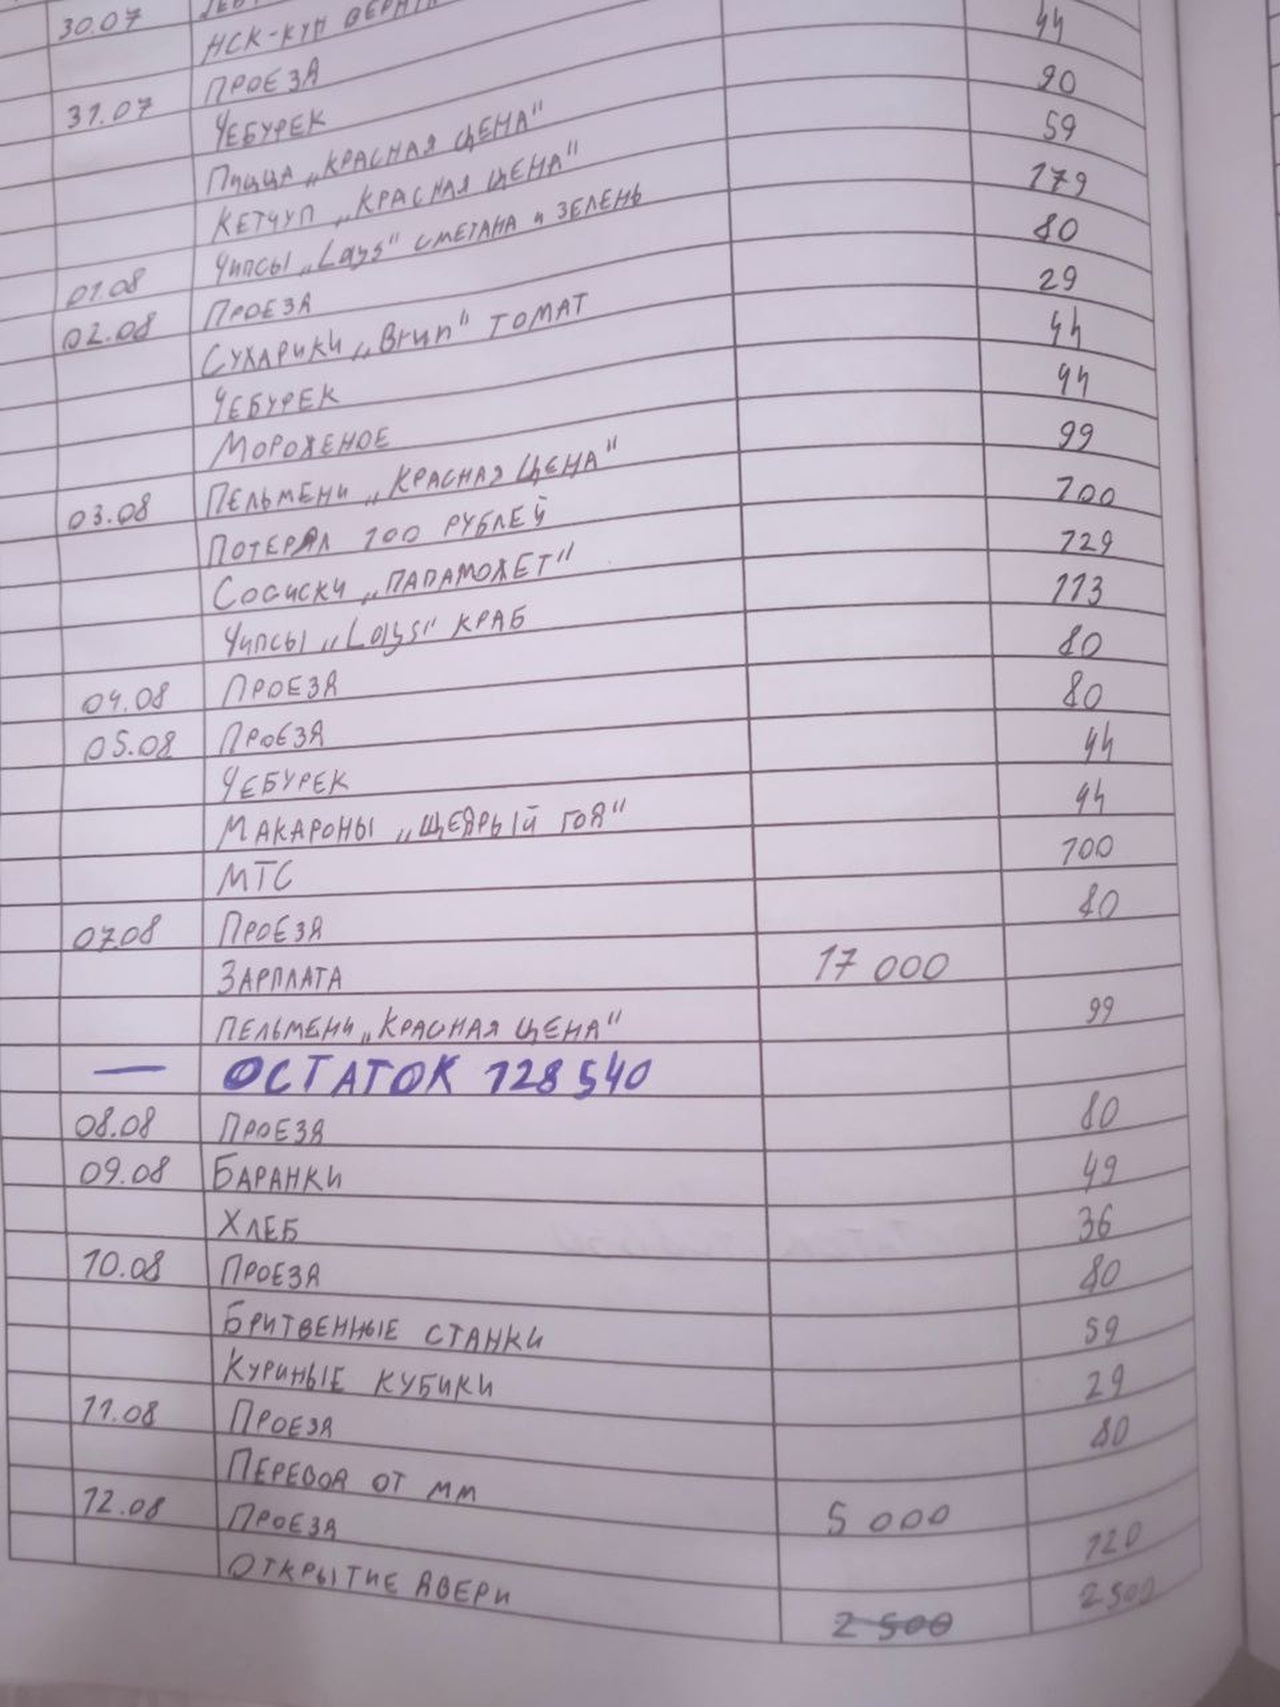 30.07
НСК-КУП
31.07 ПРОЕЗД
ЧЕБУРЕК 44
ПИЦЦА „КРАСНАЯ ЦЕНА" 90
КЕТЧУП „КРАСНАЯ ЦЕНА" 59
01.08 ЧИПСЫ „Lays" СМЕТАНА И ЗЕЛЕНЬ 179
02.08 ПРОЕЗД 80
СУХАРИКИ „Вгип" ТОМАТ 29
ЧЕБУРЕК 44
МОРОЖЕНОЕ 44
03.08 ПЕЛЬМЕНИ „КРАСНАЯ ЦЕНА" 99
ПОТЕРЯЛ 100 РУБЛЕЙ 100
СОСИСКИ „ПАПАМОЖЕТ" 129
ЧИПСЫ „Lays" КРАБ 113
04.08 ПРОЕЗД 80
05.08 ПРОЕЗД 80
ЧЕБУРЕК 44
МАКАРОНЫ „ЩЕДРЫЙ ГОД" 44
МТС 100
07.08 ПРОЕЗД 80
ЗАРПЛАТА 17 000
ПЕЛЬМЕНИ „КРАСНАЯ ЦЕНА" 99
— ОСТАТОК 128 540
08.08 ПРОЕЗД 80
09.08 БАРАНКИ 49
ХЛЕБ 36
10.08 ПРОЕЗД 80
БРИТВЕННЫЕ СТАНКИ 59
КУРИНЫЕ КУБИКИ 29
11.08 ПРОЕЗД 80
ПЕРЕВОД ОТ ММ 5 000
12.08 ПРОЕЗД 120
ОТКРЫТИЕ ДВЕРИ 2 500 2 500